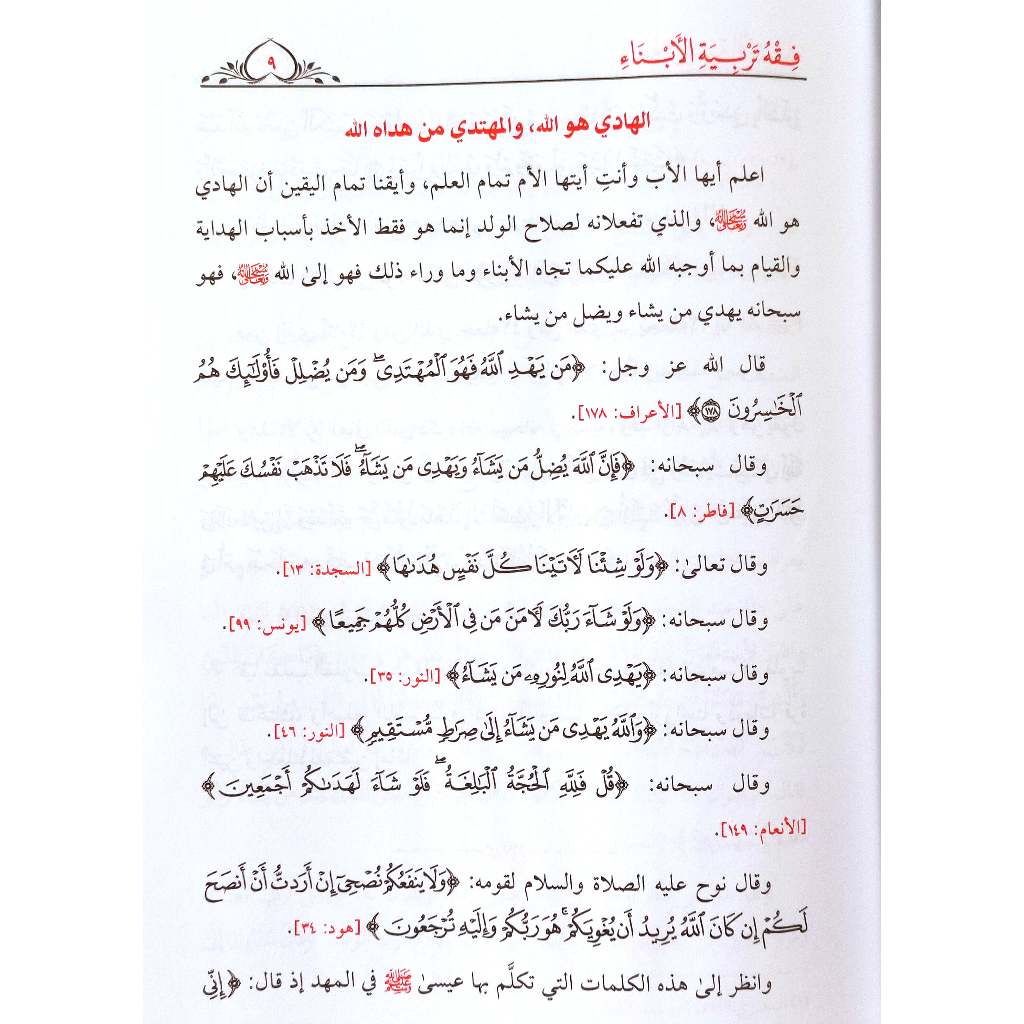 فِقْهُ تَرْبِيَةِ الأَبْنَاءِ
٩
الهادي هو الله، والمهتدي من هداه الله
اعلم أيها الأب وأنتِ أيتها الأم تمام العلم، وأيقنا تمام اليقين أن الهادي
هو الله ﷾، والذي تفعلانه لصلاح الولد إنما هو فقط الأخذ بأسباب الهداية
والقيام بما أوجبه الله عليكما تجاه الأبناء وما وراء ذلك فهو إلىٰ الله ﷾، فهو
سبحانه يهدي من يشاء ويضل من يشاء.
قال الله عز وجل: ﴿مَن يَهْدِ ٱللَّهُ فَهُوَ ٱلْمُهْتَدِى ۖ وَمَن يُضْلِلْ فَأُو۟لَـٰٓئِكَ هُمُ
ٱلْخَـٰسِرُونَ ١٧٨﴾ [الأعراف: ١٧٨].
وقال سبحانه: ﴿فَإِنَّ ٱللَّهَ يُضِلُّ مَن يَشَآءُ وَيَهْدِى مَن يَشَآءُ ۖ فَلَا تَذْهَبْ نَفْسُكَ عَلَيْهِمْ
حَسَرَٰتٍ﴾ [فاطر: ٨].
وقال تعالىٰ: ﴿وَلَوْ شِئْنَا لَـَٔاتَيْنَا كُلَّ نَفْسٍ هُدَىٰهَا﴾ [السجدة: ١٣].
وقال سبحانه: ﴿وَلَوْ شَآءَ رَبُّكَ لَـَٔامَنَ مَن فِى ٱلْأَرْضِ كُلُّهُمْ جَمِيعًا﴾ [يونس: ٩٩].
وقال سبحانه: ﴿يَهْدِى ٱللَّهُ لِنُورِهِۦ مَن يَشَآءُ﴾ [النور: ٣٥].
وقال سبحانه: ﴿وَٱللَّهُ يَهْدِى مَن يَشَآءُ إِلَىٰ صِرَٰطٍ مُّسْتَقِيمٍ﴾ [النور: ٤٦].
وقال سبحانه: ﴿قُلْ فَلِلَّهِ ٱلْحُجَّةُ ٱلْبَـٰلِغَةُ ۖ فَلَوْ شَآءَ لَهَدَىٰكُمْ أَجْمَعِينَ﴾
[الأنعام: ١٤٩].
وقال نوح عليه الصلاة والسلام لقومه: ﴿وَلَا يَنفَعُكُمْ نُصْحِىٓ إِنْ أَرَدتُّ أَنْ أَنصَحَ
لَكُمْ إِن كَانَ ٱللَّهُ يُرِيدُ أَن يُغْوِيَكُمْ ۚ هُوَ رَبُّكُمْ وَإِلَيْهِ تُرْجَعُونَ﴾ [هود: ٣٤].
وانظر إلىٰ هذه الكلمات التي تكلَّم بها عيسىٰ ﷺ في المهد إذ قال: ﴿إِنِّى